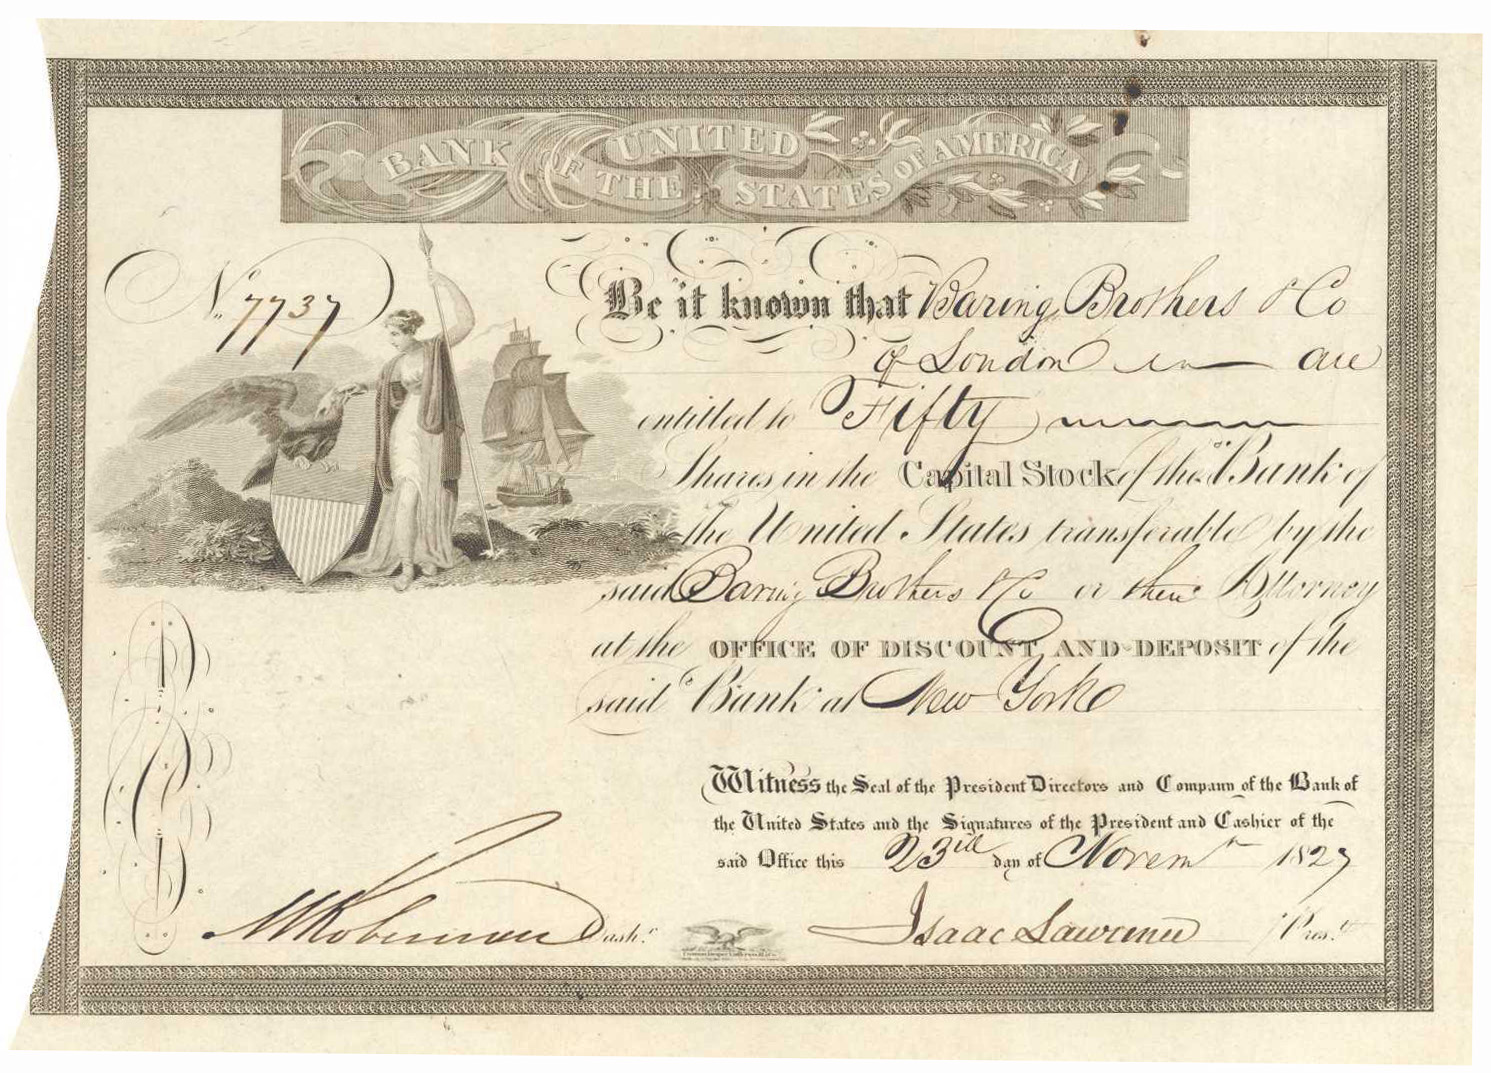 BANK OF THE UNITED STATES OF AMERICA
No. 7737
Be it known that Baring Brothers & Co
of London are
entitled to Fifty
Shares in the Capital Stock of the Bank of
the United States transferable by the
said Baring Brothers & Co or their Attorney
at the OFFICE OF DISCOUNT AND DEPOSIT of the
said Bank at New York
Witness the Seal of the President Directors and Company of the Bank of
the United States and the Signatures of the President and Cashier of the
said Office this 23rd day of Novemr 1827
Cashr.
Isaac Lawrence Prest.